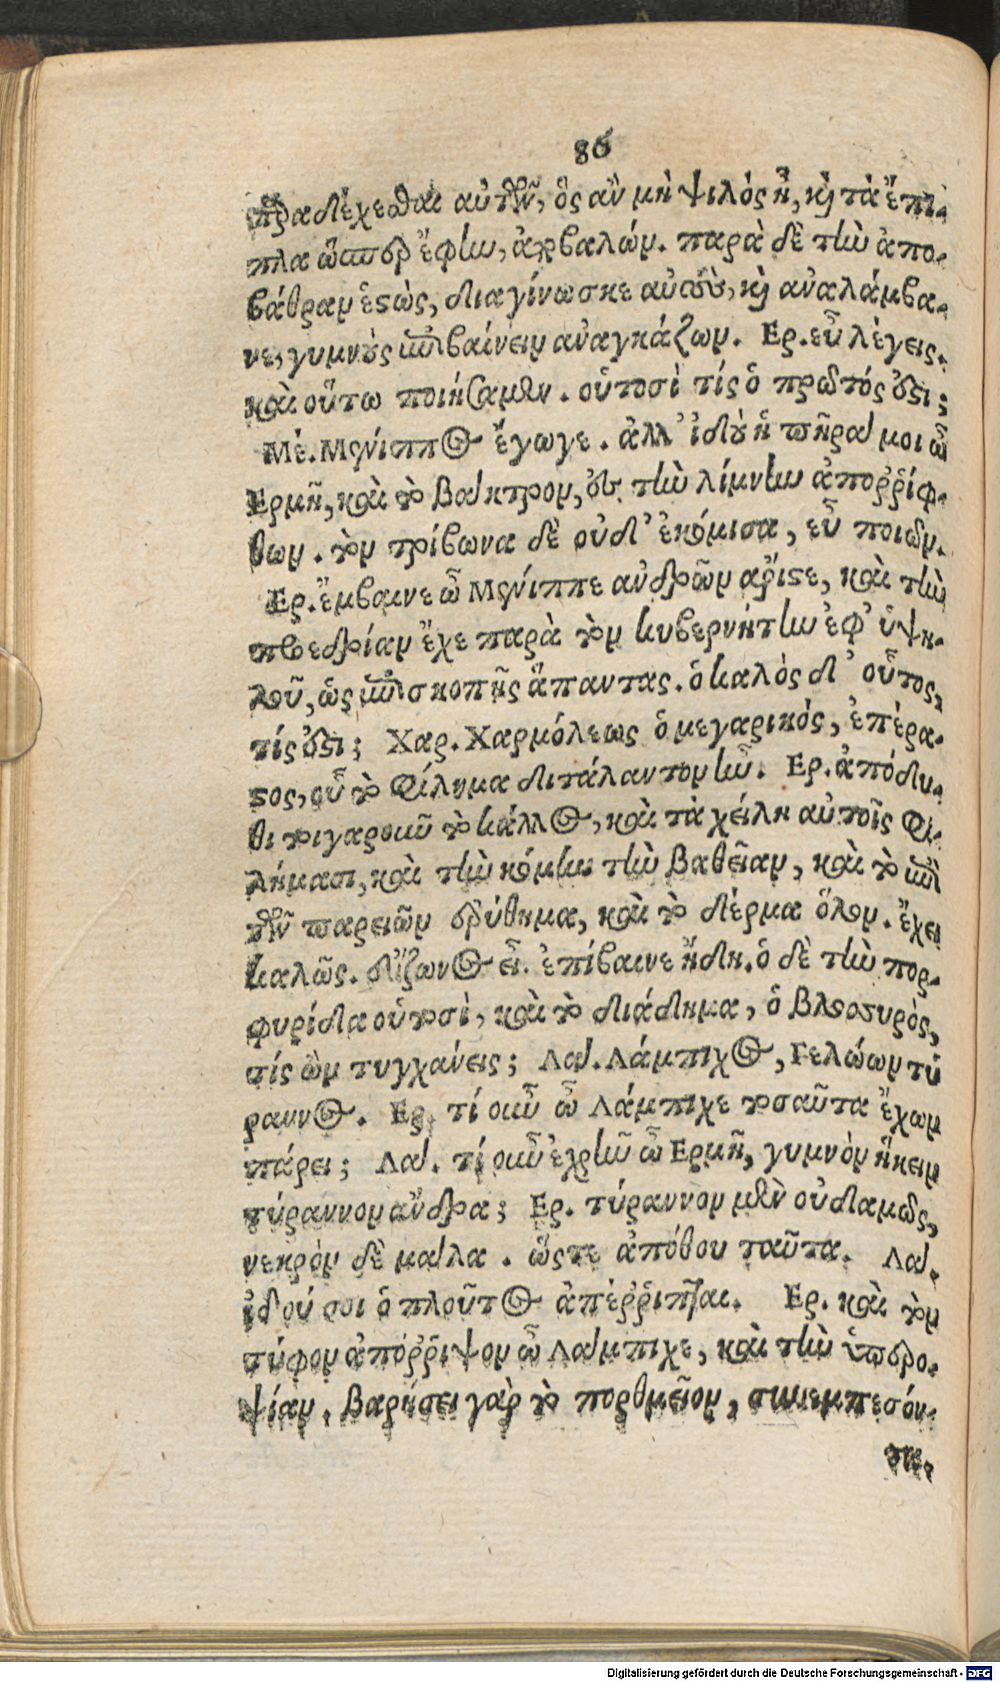 86
παραδέχεσθαι αὐτῶν, ὃς ἂν μὴ ψιλὸς ᾖ, καὶ τὰ ἔπι-
πλα ὥσπερ ἔφην, ἀποβαλών. παρὰ δὲ τὴν ἀπο-
βάθραν ἑστὼς, διαγίνωσκε αὐτοὺς, καὶ ἀναλάμβα-
νε, γυμνοὺς ἐπιβαίνειν ἀναγκάζων. Ερ. εὖ λέγεις.
καὶ οὕτω ποιήσωμεν. οὑτοσὶ τίς ὁ πρῶτός ἐστι;
Μέ. Μένιππος ἔγωγε. ἀλλ' ἰδοὺ ἡ πήρα μοι ὦ
Ερμῆ, καὶ τὸ βάκτρον, ἐς τὴν λίμνην ἀποῤῥίφ-
θων. τὸν τρίβωνα δὲ οὐδ' ἐκόμισα, εὖ ποιῶν.
Ερ. ἔμβαινε ὦ Μένιππε ἀνδρῶν ἄριστε, καὶ τὴν
προεδρίαν ἔχε παρὰ τὸν κυβερνήτην ἐφ' ὑψη-
λοῦ, ὡς ἐπισκοπῇς ἅπαντας. ὁ καλὸς δ' οὗτος,
τίς ἐστι; Χαρ. Χαρμόλεως ὁ μεγαρικὸς, ἐπέρα-
στος, οὗ τὸ φίλημα διτάλαντον ἦν. Ερ. ἀπόδυ-
θι τοιγαροῦν τὸ κάλλος, καὶ τὰ χείλη αὐτοῖς φι-
λήμασι, καὶ τὴν κόμην τὴν βαθεῖαν, καὶ τὸ ἐπὶ
τῶν παρειῶν ἐρύθημα, καὶ τὸ δέρμα ὅλον. ἔχει
καλῶς. εὔζωνος εἶ. ἐπίβαινε ἤδη. ὁ δὲ τὴν πορ-
φυρίδα οὑτοσὶ, καὶ τὸ διάδημα, ὁ βλοσυρὸς,
τίς ὢν τυγχάνεις; Λά. Λάμπιχος, Γελώων τύ
ραννος. Ερ. τί οὖν ὦ Λάμπιχε τοσαῦτα ἔχων
πάρει; Λά. τί οὖν ἐχρῆν ὦ Ερμῆ, γυμνὸν ἥκειν
τύραννον ἄνδρα; Ερ. τύραννον μὲν οὐδαμῶς,
νεκρὸν δὲ μάλα. ὥστε ἀπόθου ταῦτα. Λά.
ἰδού σοι ὁ πλοῦτος ἀπέῤῥιπται. Ερ. καὶ τὸν
τύφον ἀπόῤῥιψον ὦ Λάμπιχε, καὶ τὴν ὑπερο-
ψίαν. βαρήσει γὰρ τὸ πορθμεῖον, συνεμπεσόν-
τα.
Digitalisierung gefördert durch die Deutsche Forschungsgemeinschaft - DFG